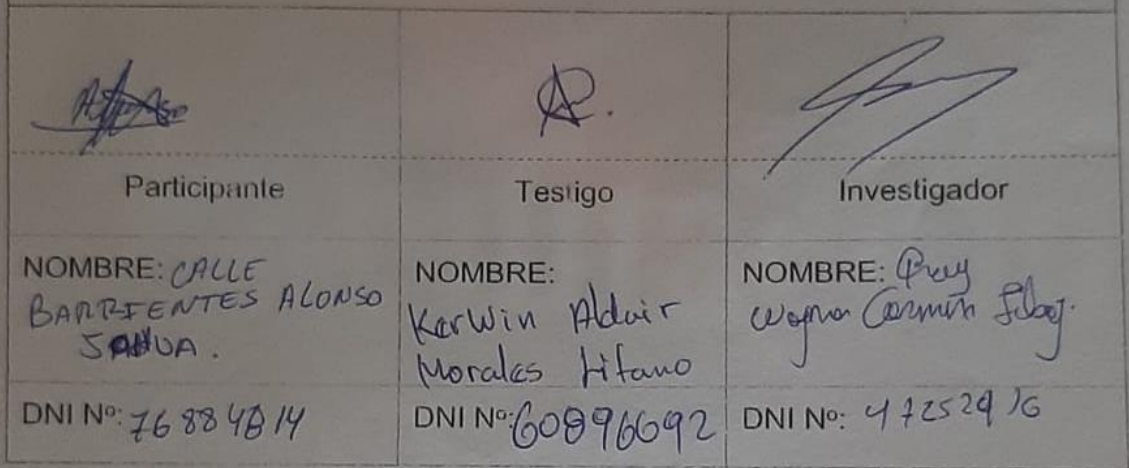 Participante
Testigo
Investigador
NOMBRE: CALLE
BARRIENTES ALONSO
NOMBRE:
Kerwin Aldair
Morales Litano
NOMBRE:
DNI Nº: 76884814
DNI Nº: 60896692
DNI Nº: 47252916